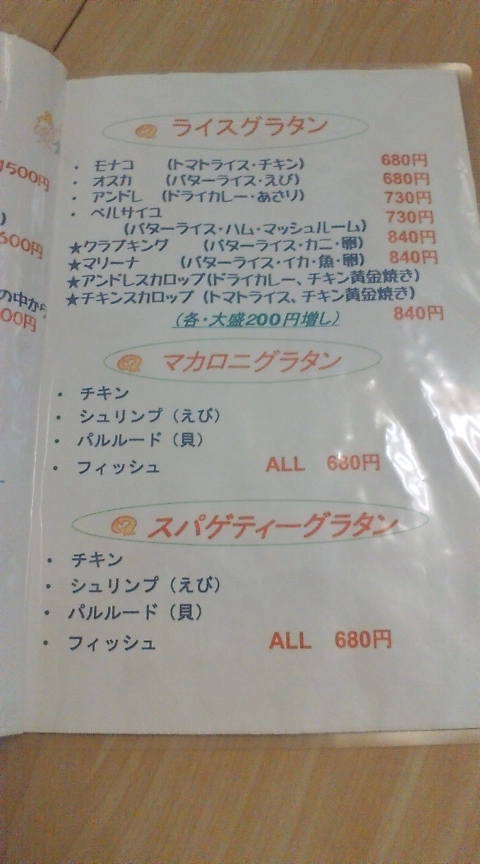 ライスグラタン
・ モナコ （トマトライス・チキン） 680円
・ オスカ （バターライス・えび） 680円
・ アンドレ （ドライカレー・あさり） 730円
・ ベルサイユ 730円
（バターライス・ハム・マッシュルーム）
★クラブキング （バターライス・カニ・卵） 840円
★マリーナ （バターライス・イカ・魚・卵） 840円
★アンドレスカロップ(ドライカレー、チキン黄金焼き)
★チキンスカロップ (トマトライス、チキン黄金焼き)
840円
（各・大盛200円増し）
マカロニグラタン
・ チキン
・ シュリンプ（えび）
・ パルルード（貝）
・ フィッシュ ALL 680円
スパゲティーグラタン
・ チキン
・ シュリンプ（えび）
・ パルルード（貝）
・ フィッシュ ALL 680円
500円
600円
の中から
00円